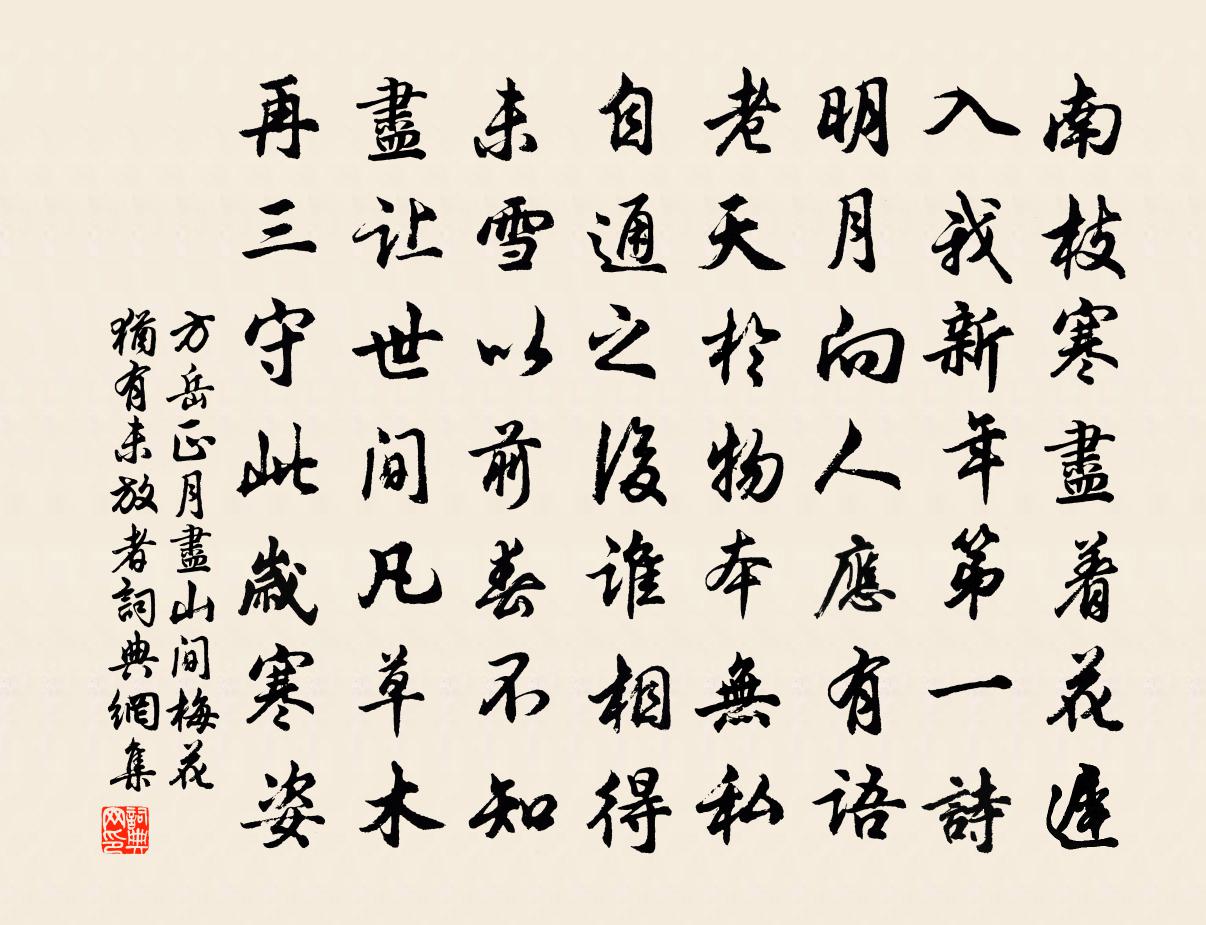 南枝寒盡着花遲
入我新年第一詩
明月向人應有語
老天於物本無私
自通之後誰相得
未雪以前春不知
盡让世間凡草木
再三守此歲寒姿
方岳正月盡山間梅花
猶有未放者詞典網集
詞典网印